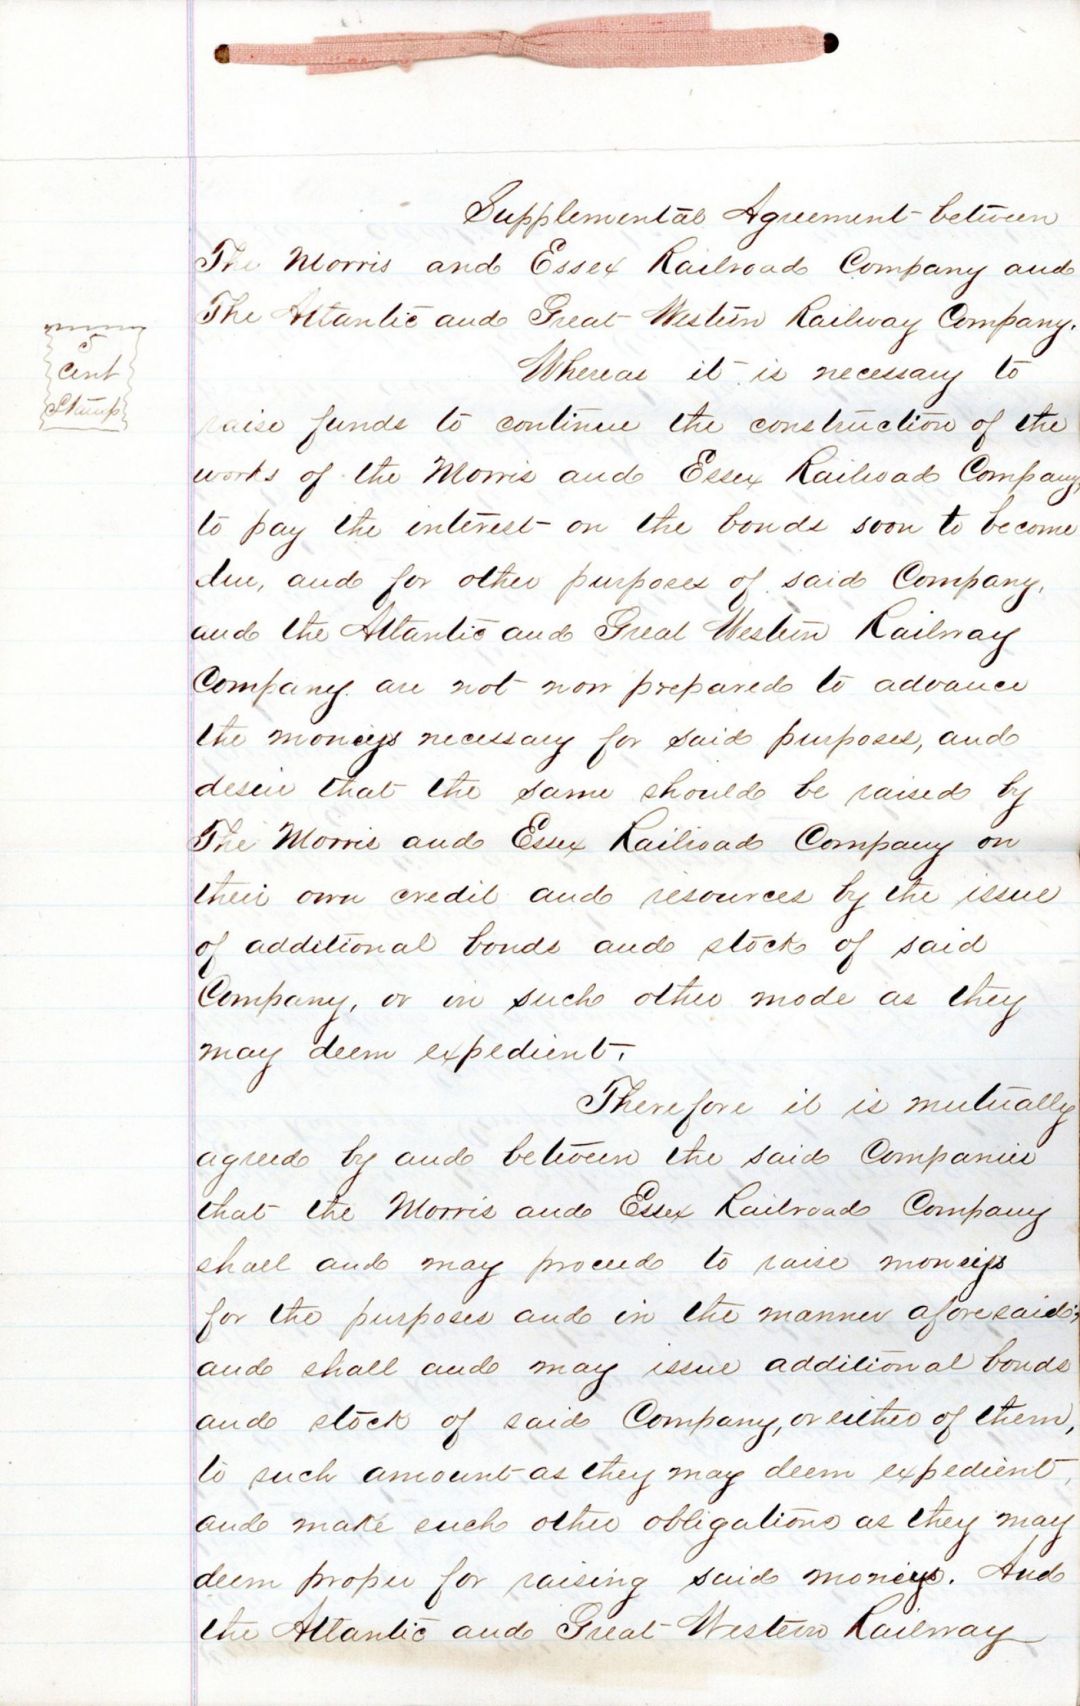 Supplemental Agreement between
The Morris and Essex Railroad Company and
The Atlantic and Great Western Railway Company.
5
Cent
Stamp
Whereas it is necessary to
raise funds to continue the construction of the
works of the Morris and Essex Railroad Company,
to pay the interest on the bonds soon to become
due, and for other purposes of said Company,
and the Atlantic and Great Western Railway
Company are not now prepared to advance
the moneys necessary for said purposes, and
desire that the same should be raised by
The Morris and Essex Railroad Company on
their own credit and resources by the issue
of additional bonds and stock of said
Company, or in such other mode as they
may deem expedient.
Therefore it is mutually
agreed by and between the said Companies
that the Morris and Essex Railroad Company
shall and may proceed to raise moneys
for the purposes and in the manner aforesaid;
and shall and may issue additional bonds
and stock of said Company, or either of them,
to such amount as they may deem expedient,
and make such other obligations as they may
deem proper for raising said moneys. And
the Atlantic and Great Western Railway